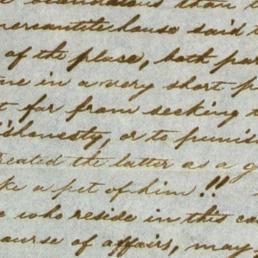 scandalous than t
mercantile house said t
of the place, both par
me in a very short p
t far from seeking t
ishonesty, or to punis
reated the latter as a g
ke a pet of him!!
e who reside in this ca
ourse of affairs, may